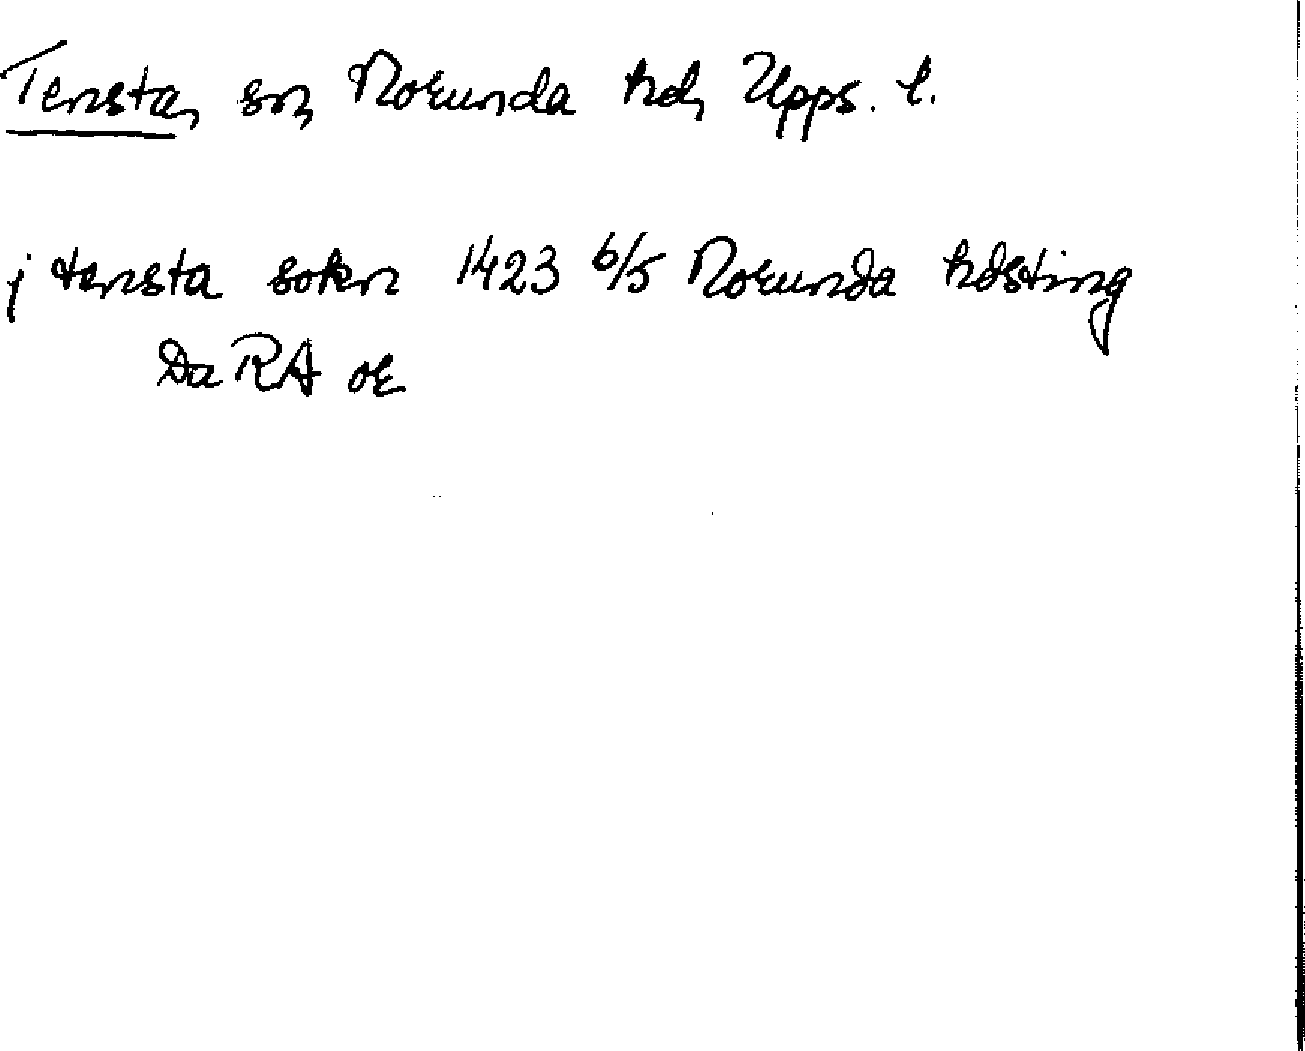 Tensta, sn, Norunda hd, Upps. l.
j tensta sokn 1423 6/5 Norunda hdsting
Da RA or